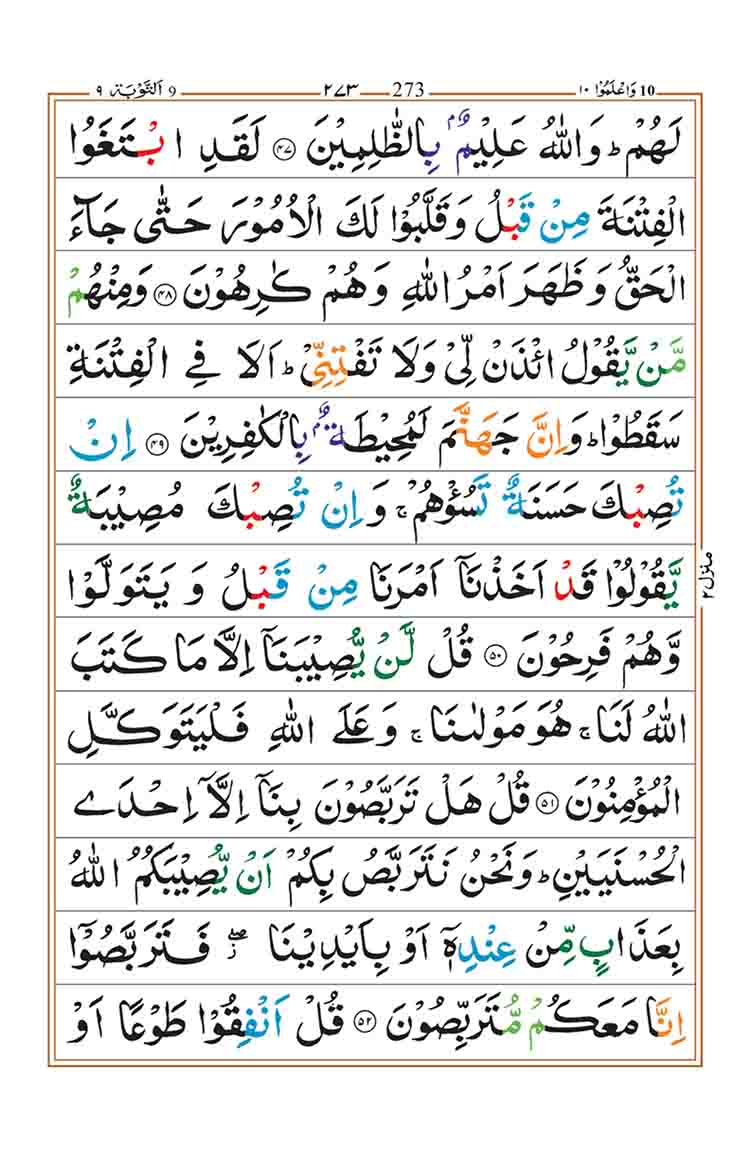 10 وَاعْلَمُوْا ١٠ 273 ٢٧٣ 9 اَلتَّوْبَة ٩
لَهُمْ ؕ وَاللّٰهُ عَلِيْمٌۢ بِالظّٰلِمِيْنَ ﴿۴۷﴾ لَقَدِ ابْتَغَوُا
الْفِتْنَةَ مِنْ قَبْلُ وَقَلَّبُوْا لَكَ الْاُمُوْرَ حَتّٰى جَآءَ
الْحَقُّ وَظَهَرَ اَمْرُ اللّٰهِ وَهُمْ كٰرِهُوْنَ ﴿۴۸﴾ وَمِنْهُمْ
مَّنْ يَّقُوْلُ ائْذَنْ لِّىْ وَلَا تَفْتِنِّىْ ؕ اَلَا فِى الْفِتْنَةِ
سَقَطُوْا ؕ وَاِنَّ جَهَنَّمَ لَمُحِيْطَةٌۢ بِالْكٰفِرِيْنَ ﴿۴۹﴾ اِنْ
تُصِبْكَ حَسَنَةٌ تَسُؤْهُمْ ۚ وَاِنْ تُصِبْكَ مُصِيْبَةٌ
يَّقُوْلُوْا قَدْ اَخَذْنَاۤ اَمْرَنَا مِنْ قَبْلُ وَيَتَوَلَّوْا
وَّهُمْ فَرِحُوْنَ ﴿۵۰﴾ قُلْ لَّنْ يُّصِيْبَنَاۤ اِلَّا مَا كَتَبَ
اللّٰهُ لَنَا ۚ هُوَ مَوْلٰٮنَا ۚ وَعَلَى اللّٰهِ فَلْيَتَوَكَّلِ
الْمُؤْمِنُوْنَ ﴿۵۱﴾ قُلْ هَلْ تَرَبَّصُوْنَ بِنَاۤ اِلَّاۤ اِحْدَى
الْحُسْنَيَيْنِ ؕ وَنَحْنُ نَتَرَبَّصُ بِكُمْ اَنْ يُّصِيْبَكُمُ اللّٰهُ
بِعَذَابٍ مِّنْ عِنْدِهٖۤ اَوْ بِاَيْدِيْنَا ۖز فَتَرَبَّصُوْۤا
اِنَّا مَعَكُمْ مُّتَرَبِّصُوْنَ ﴿۵۲﴾ قُلْ اَنْفِقُوْا طَوْعًا اَوْ
منزل ٢